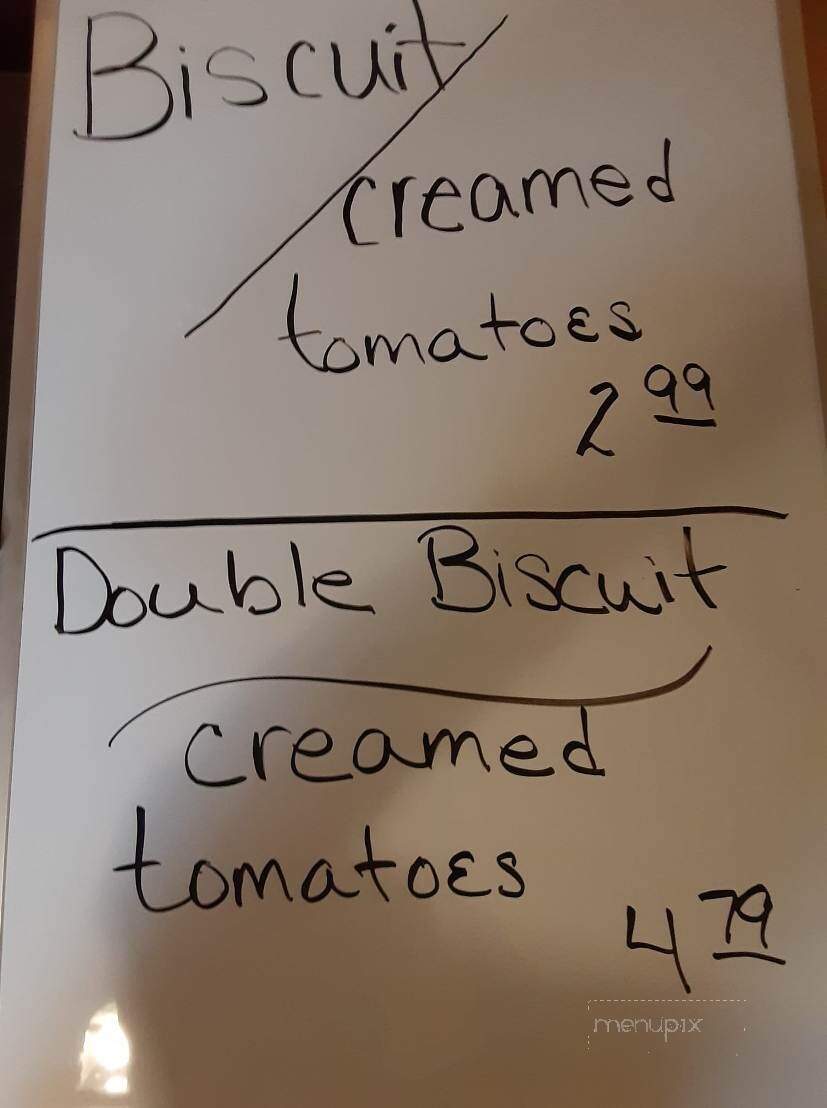 Biscuit/
creamed
tomatoes
2 99
Double Biscuit
creamed
tomatoes
4 79
menupix